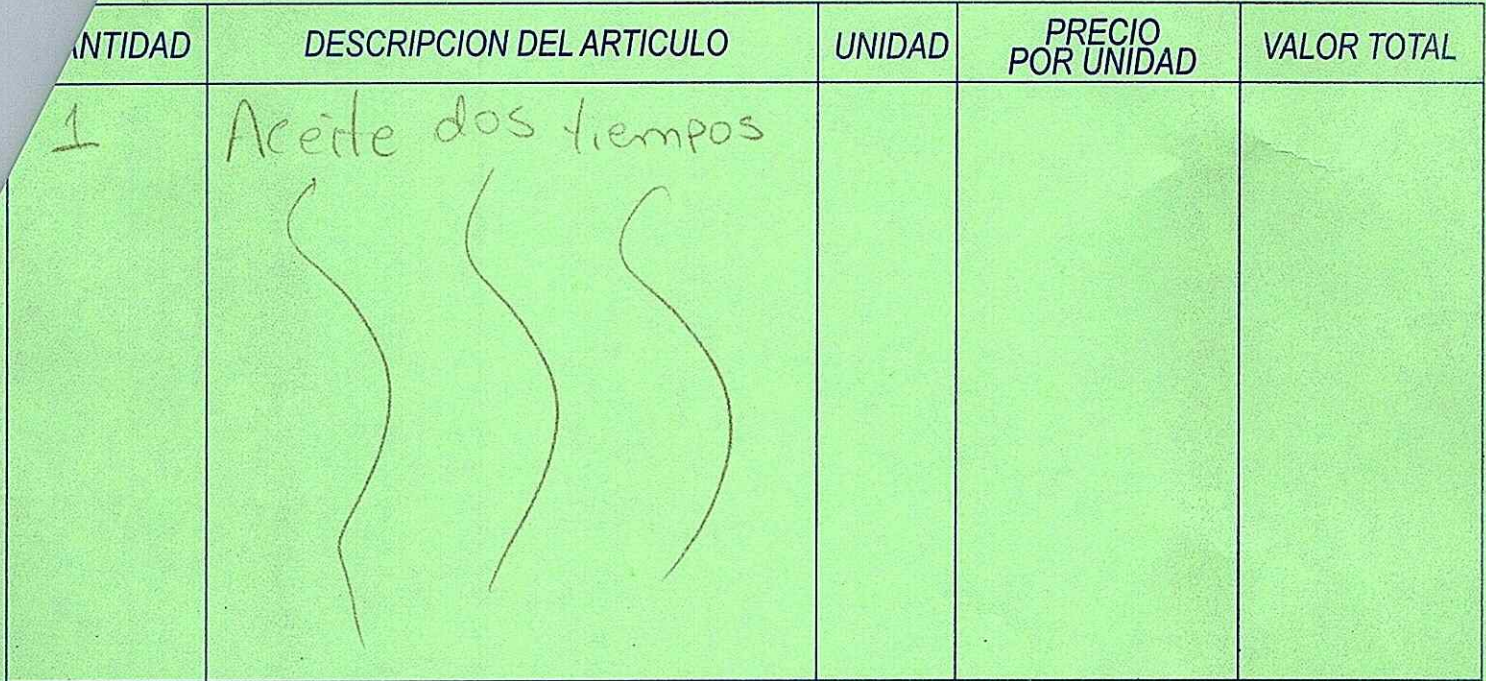 ANTIDAD DESCRIPCION DEL ARTICULO UNIDAD PRECIO POR UNIDAD VALOR TOTAL
1 Aceite dos tiempos